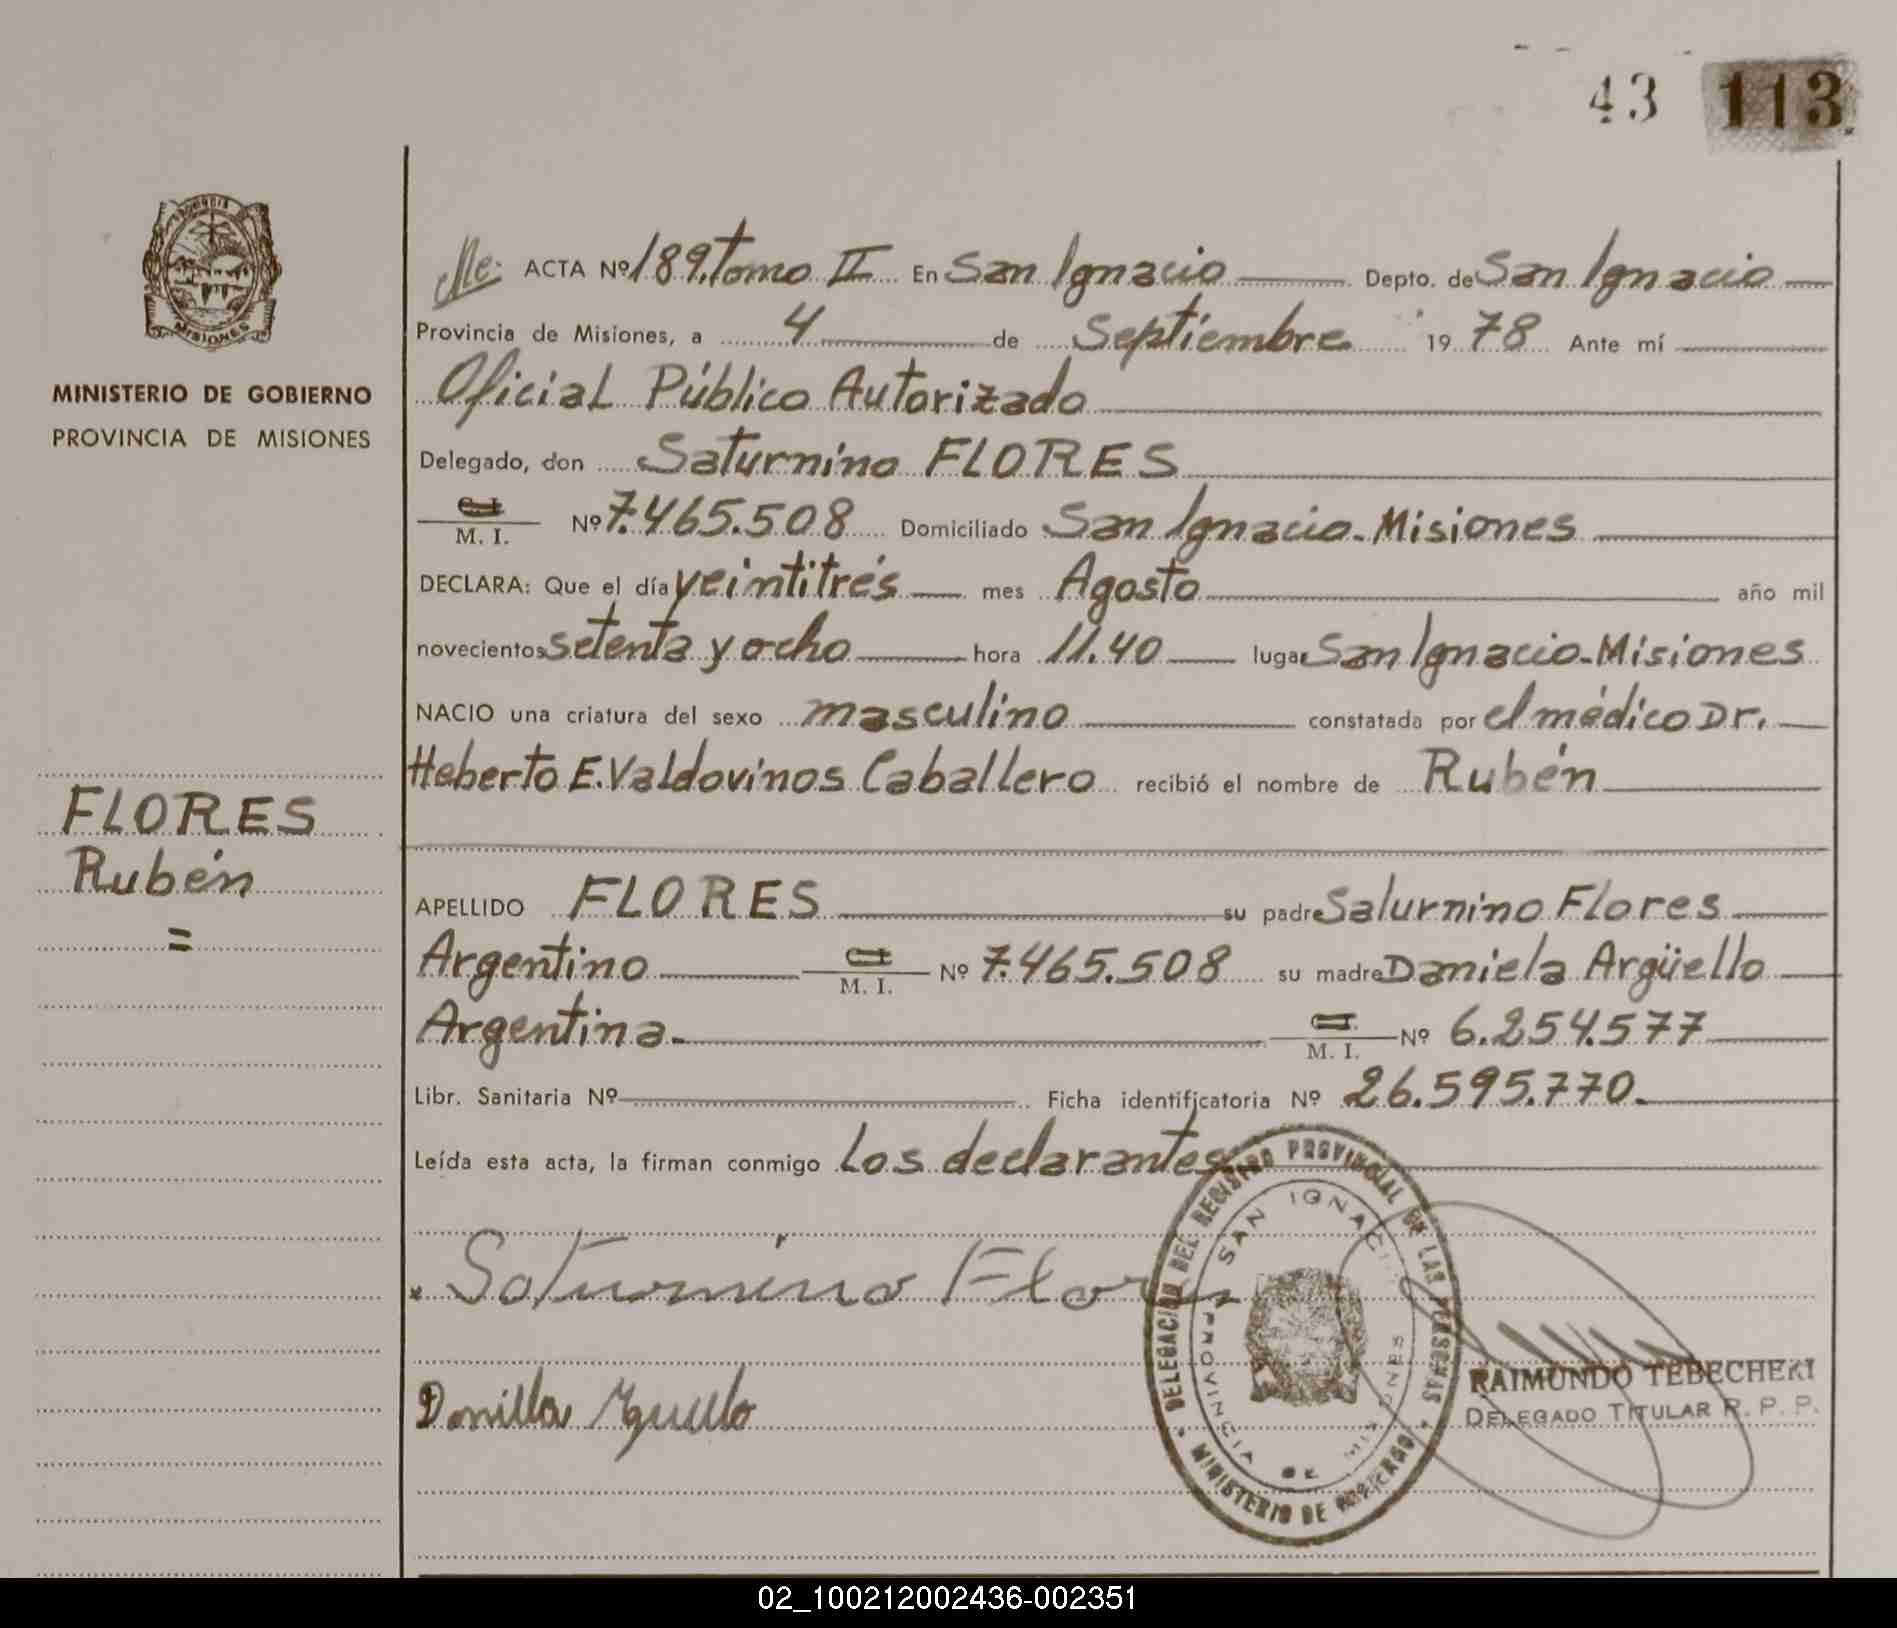 43 113
MISIONES
MINISTERIO DE GOBIERNO
PROVINCIA DE MISIONES
FLORES
Rubén
=
ACTA Nº 189. Tomo II En San Ignacio Depto. de San Ignacio
Provincia de Misiones, a 4 de Septiembre 1978 Ante mí
Oficial Público Autorizado
Delegado, don Saturnino FLORES
C. I.
M. I. Nº 7.465.508 Domiciliado San Ignacio-Misiones
DECLARA: Que el día veintitrés mes Agosto año mil
novecientos setenta y ocho hora 11.40 lugar San Ignacio-Misiones
NACIO una criatura del sexo masculino constatada por el médico Dr.
Heberto E. Valdovinos Caballero recibió el nombre de Rubén
APELLIDO FLORES su padre Saturnino Flores
Argentino M. I. Nº 7.465.508 su madre Daniela Argüello
Argentina. M. I. Nº 6.254.577
Libr. Sanitaria Nº Ficha identificatoria Nº 26.595.770.
Leída esta acta, la firman conmigo Los declarantes
DELEGACION DEL REGISTRO PROVINCIAL DE LAS PERSONAS
SAN IGNACIO
PROVINCIA DE MISIONES
MINISTERIO DE GOBIERNO
Saturnino Flores
RAIMUNDO TEBECHERI
DELEGADO TITULAR R. P. P.
02_100212002436-002351